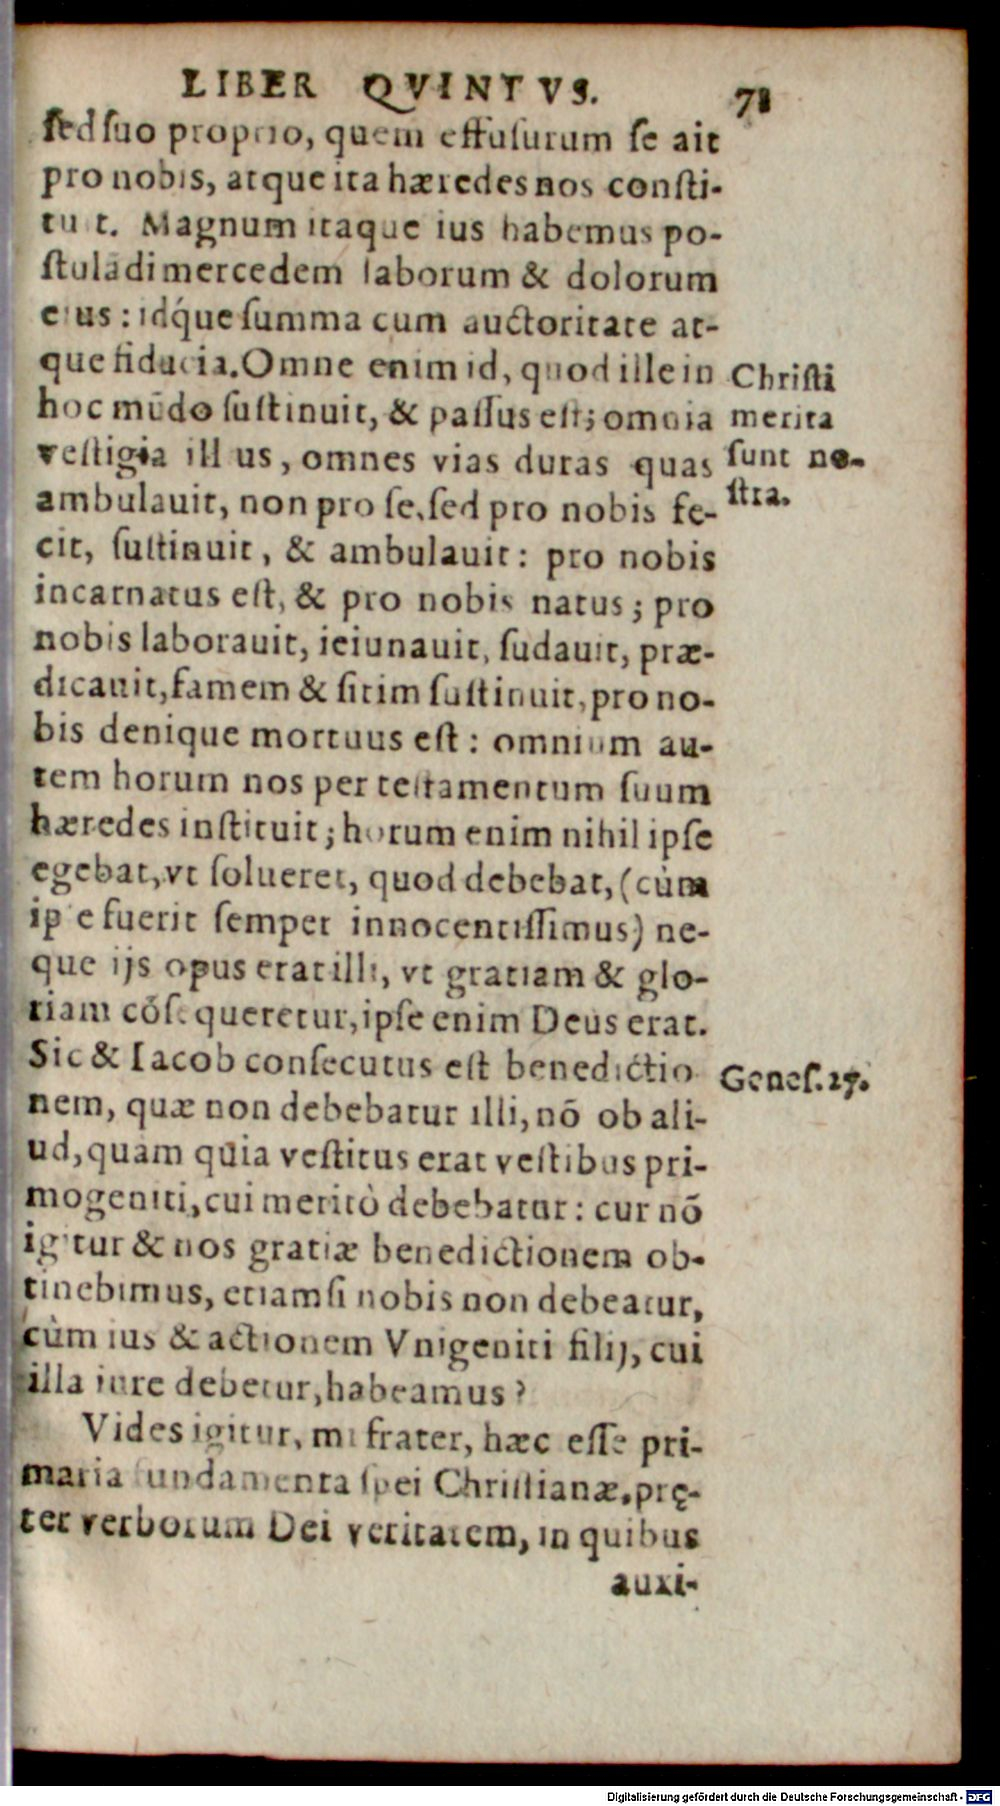 LIBER QVINTVS. 71
ſed ſuo proprio, quem effuſurum ſe ait
pro nobis, atque ita hæredes nos conſti-
tuit. Magnum itaque ius habemus po-
ſtulãdi mercedem laborum & dolorum
eius: idq́; que ſumma cum auctoritate at-
que fiducia. Omne enim id, quod ille in
hoc mũdo ſuſtinuit, & paſſus eſt; omnia
veſtigia illius, omnes vias duras quas
ambulauit, non pro ſe, ſed pro nobis fe-
cit, ſuſtinuit, & ambulauit: pro nobis
incarnatus eſt, & pro nobis natus; pro
nobis laborauit, ieiunauit, ſudauit, præ-
dicauit, famem & ſitim ſuſtinuit, pro no-
bis denique mortuus eſt: omnium au-
tem horum nos per teſtamentum ſuum
hæredes inſtituit; horum enim nihil ipſe
egebat, vt ſolueret, quod debebat, (cùm
ipſe fuerit ſemper innocentiſſimus) ne-
que ijs opus erat illi, vt gratiam & glo-
riam cõſequeretur, ipſe enim Deus erat.
Sic & Iacob conſecutus eſt benedictio
nem, quæ non debebatur illi, nõ ob ali-
ud, quam quia veſtitus erat veſtibus pri-
mogeniti, cui meritò debebatur: cur nõ
igitur & nos gratiæ benedictionem ob-
tinebimus, etiamſi nobis non debeatur,
cùm ius & actionem Vnigeniti filij, cui
illa iure debetur, habeamus?
Vides igitur, mi frater, hæc eſſe pri-
maria fundamenta ſpei Chriſtianæ, prę-
ter verborum Dei veritatem, in quibus
auxi-
Chriſti
merita
ſunt no-
ſtra.
Geneſ. 27.
Digitalisierung gefördert durch die Deutsche Forschungsgemeinschaft - DFG